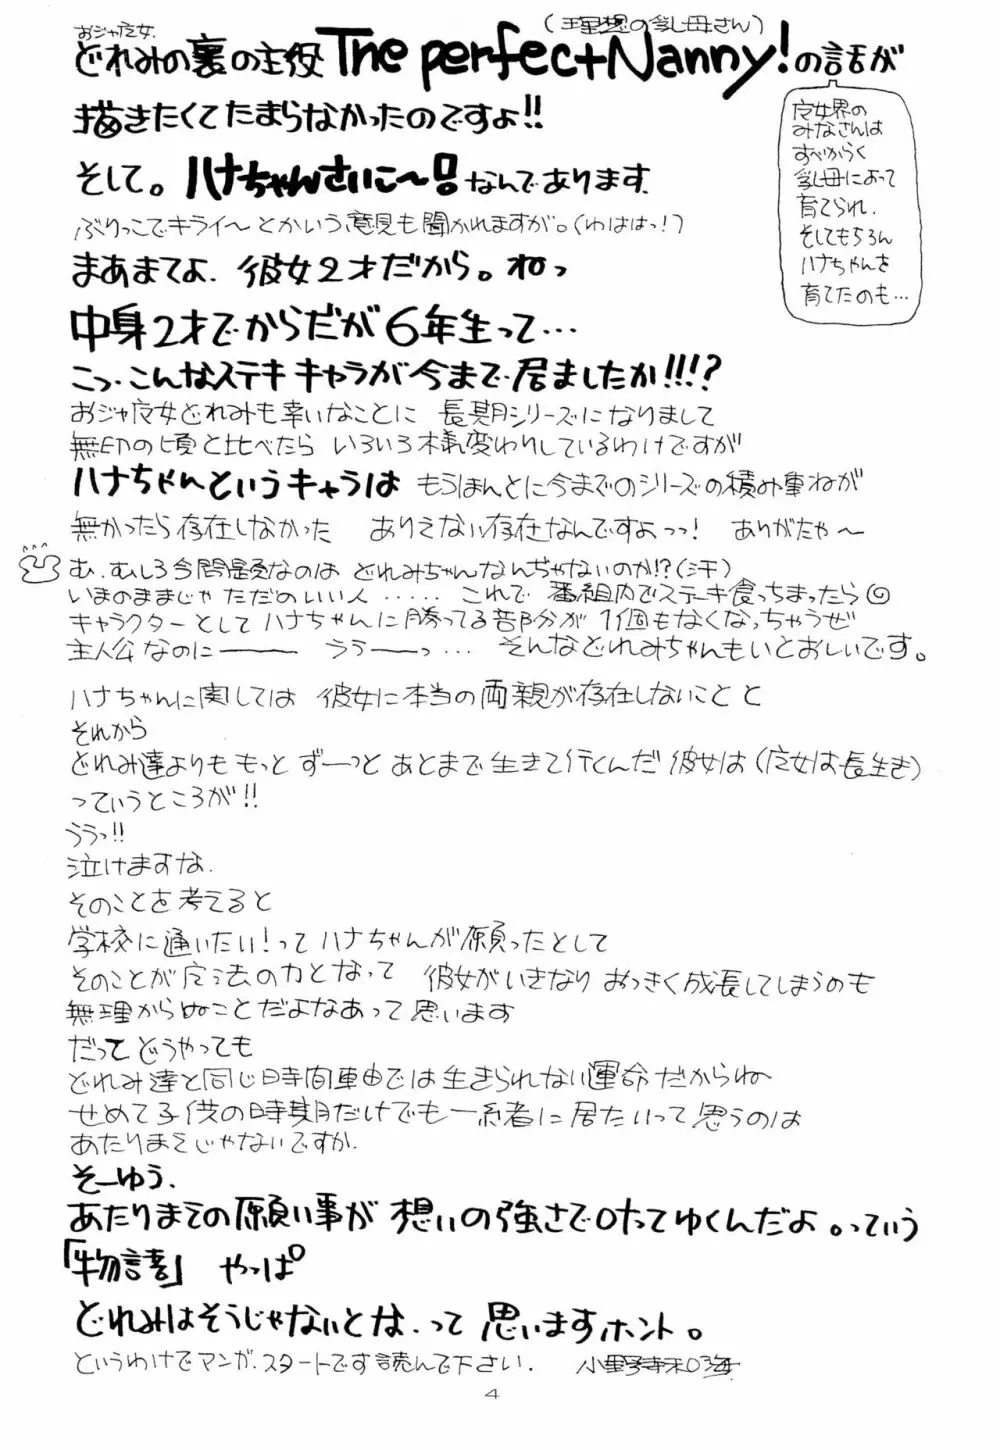 (理想の乳母さん)
おジャ魔女
どれみの裏の主役The perfect Nanny!の話が
描きたくてたまらなかったのですよ!!
そして。ハナちゃんさいこ〜!!なんであります.
ぶりっこでキライ〜とかいう意見も聞かれますが。(わははっ!)
まあまてよ. 彼女2才だから。ねっ
中身2才でからだが6年生って…
こっ.こんなステキキャラが今まで居ましたか!!!?
魔女界の
みなさんは
すべからく
乳母によって
育てられ.
そしてもちろん
ハナちゃんを
育てたのも…
おジャ魔女どれみも幸いなことに 長期シリーズになりまして
無印の頃と比べたら いろいろ様変わりしているわけですが
ハナちゃんというキャラは もうほんとに今までのシリーズの積み重ねが
無かったら存在しなかった ありえない存在なんですよっっ! ありがたや〜
む.むしろ今問題なのは どれみちゃんなんぢゃないのか!?(汗)
いまのままじゃ ただのいい人 …… これで 番組内でステーキ食っちまったら
キャラクターとしてハナちゃんに勝ってる部分が 1個もなくなっちゃうぜ
主人公なのに――― ううーっ… そんなどれみちゃんもいとおしいです。
ハナちゃんに関しては 彼女に本当の両親が存在しないことと
それから
どれみ達よりももっと ずーっと あとまで生きて行くんだ彼女は(魔女は長生き)
っていうところが!!
ううっ!!
泣けますな.
そのことを考えると
学校に通いたい!ってハナちゃんが願ったとして
そのことが魔法の力となって 彼女がいきなりおっきく成長してしまうのも
無理からぬことだよなあって思います
だってどうやっても
どれみ達と同じ時間軸では生きられない運命だからね
せめて子供の時期だけでも一緒に居たいって思うのは
あたりまえじゃないですか.
そーゆう.
あたりまえの願い事が 想いの強さで叶ってゆくんだよ。っていう
「物語」 やっぱ
どれみはそうじゃないとな.って 思いますホント。
というわけでマンガ.スタートです読んで下さい. 小野寺和海
4